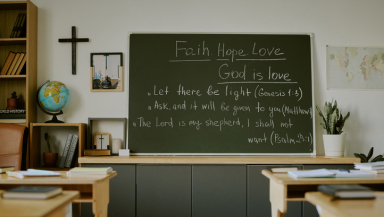 Faih Hope Love
God is love
Let there be light (Genesis 1:3)
Ask and it will be given to you (Matthew
The Lord is my shepherd, I shall not
want (Psalm